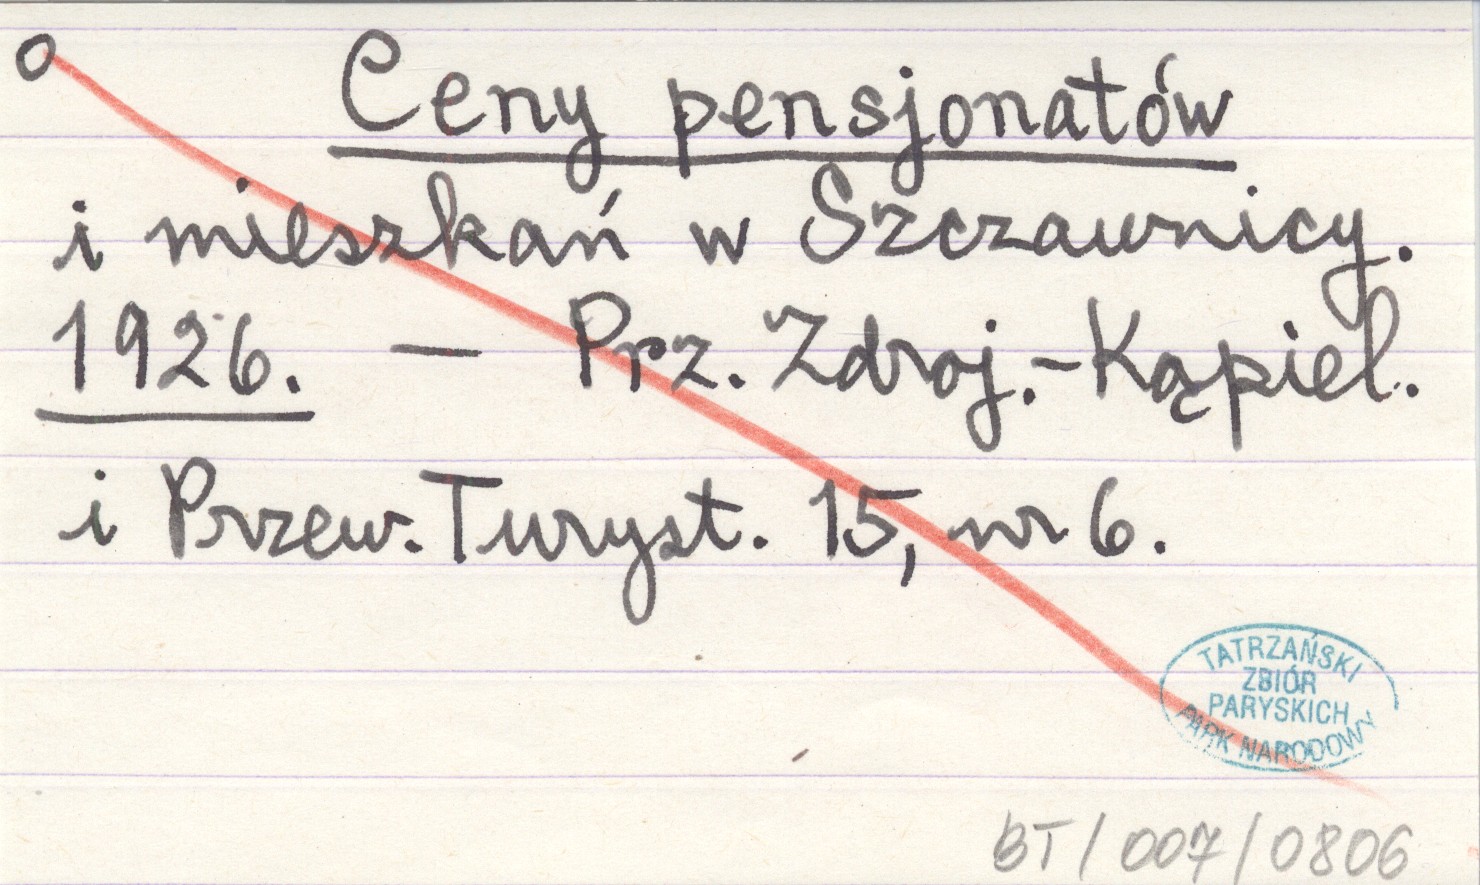 o Ceny pensjonatów
i mieszkań w Szczawnicy.
1926. — Prz. Zdroj.-Kąpiel.
i Przew. Turyst. 15, nr 6.
TATRZAŃSKI
ZBIÓR
PARYSKICH
PARK NARODOWY
BT/007/0806